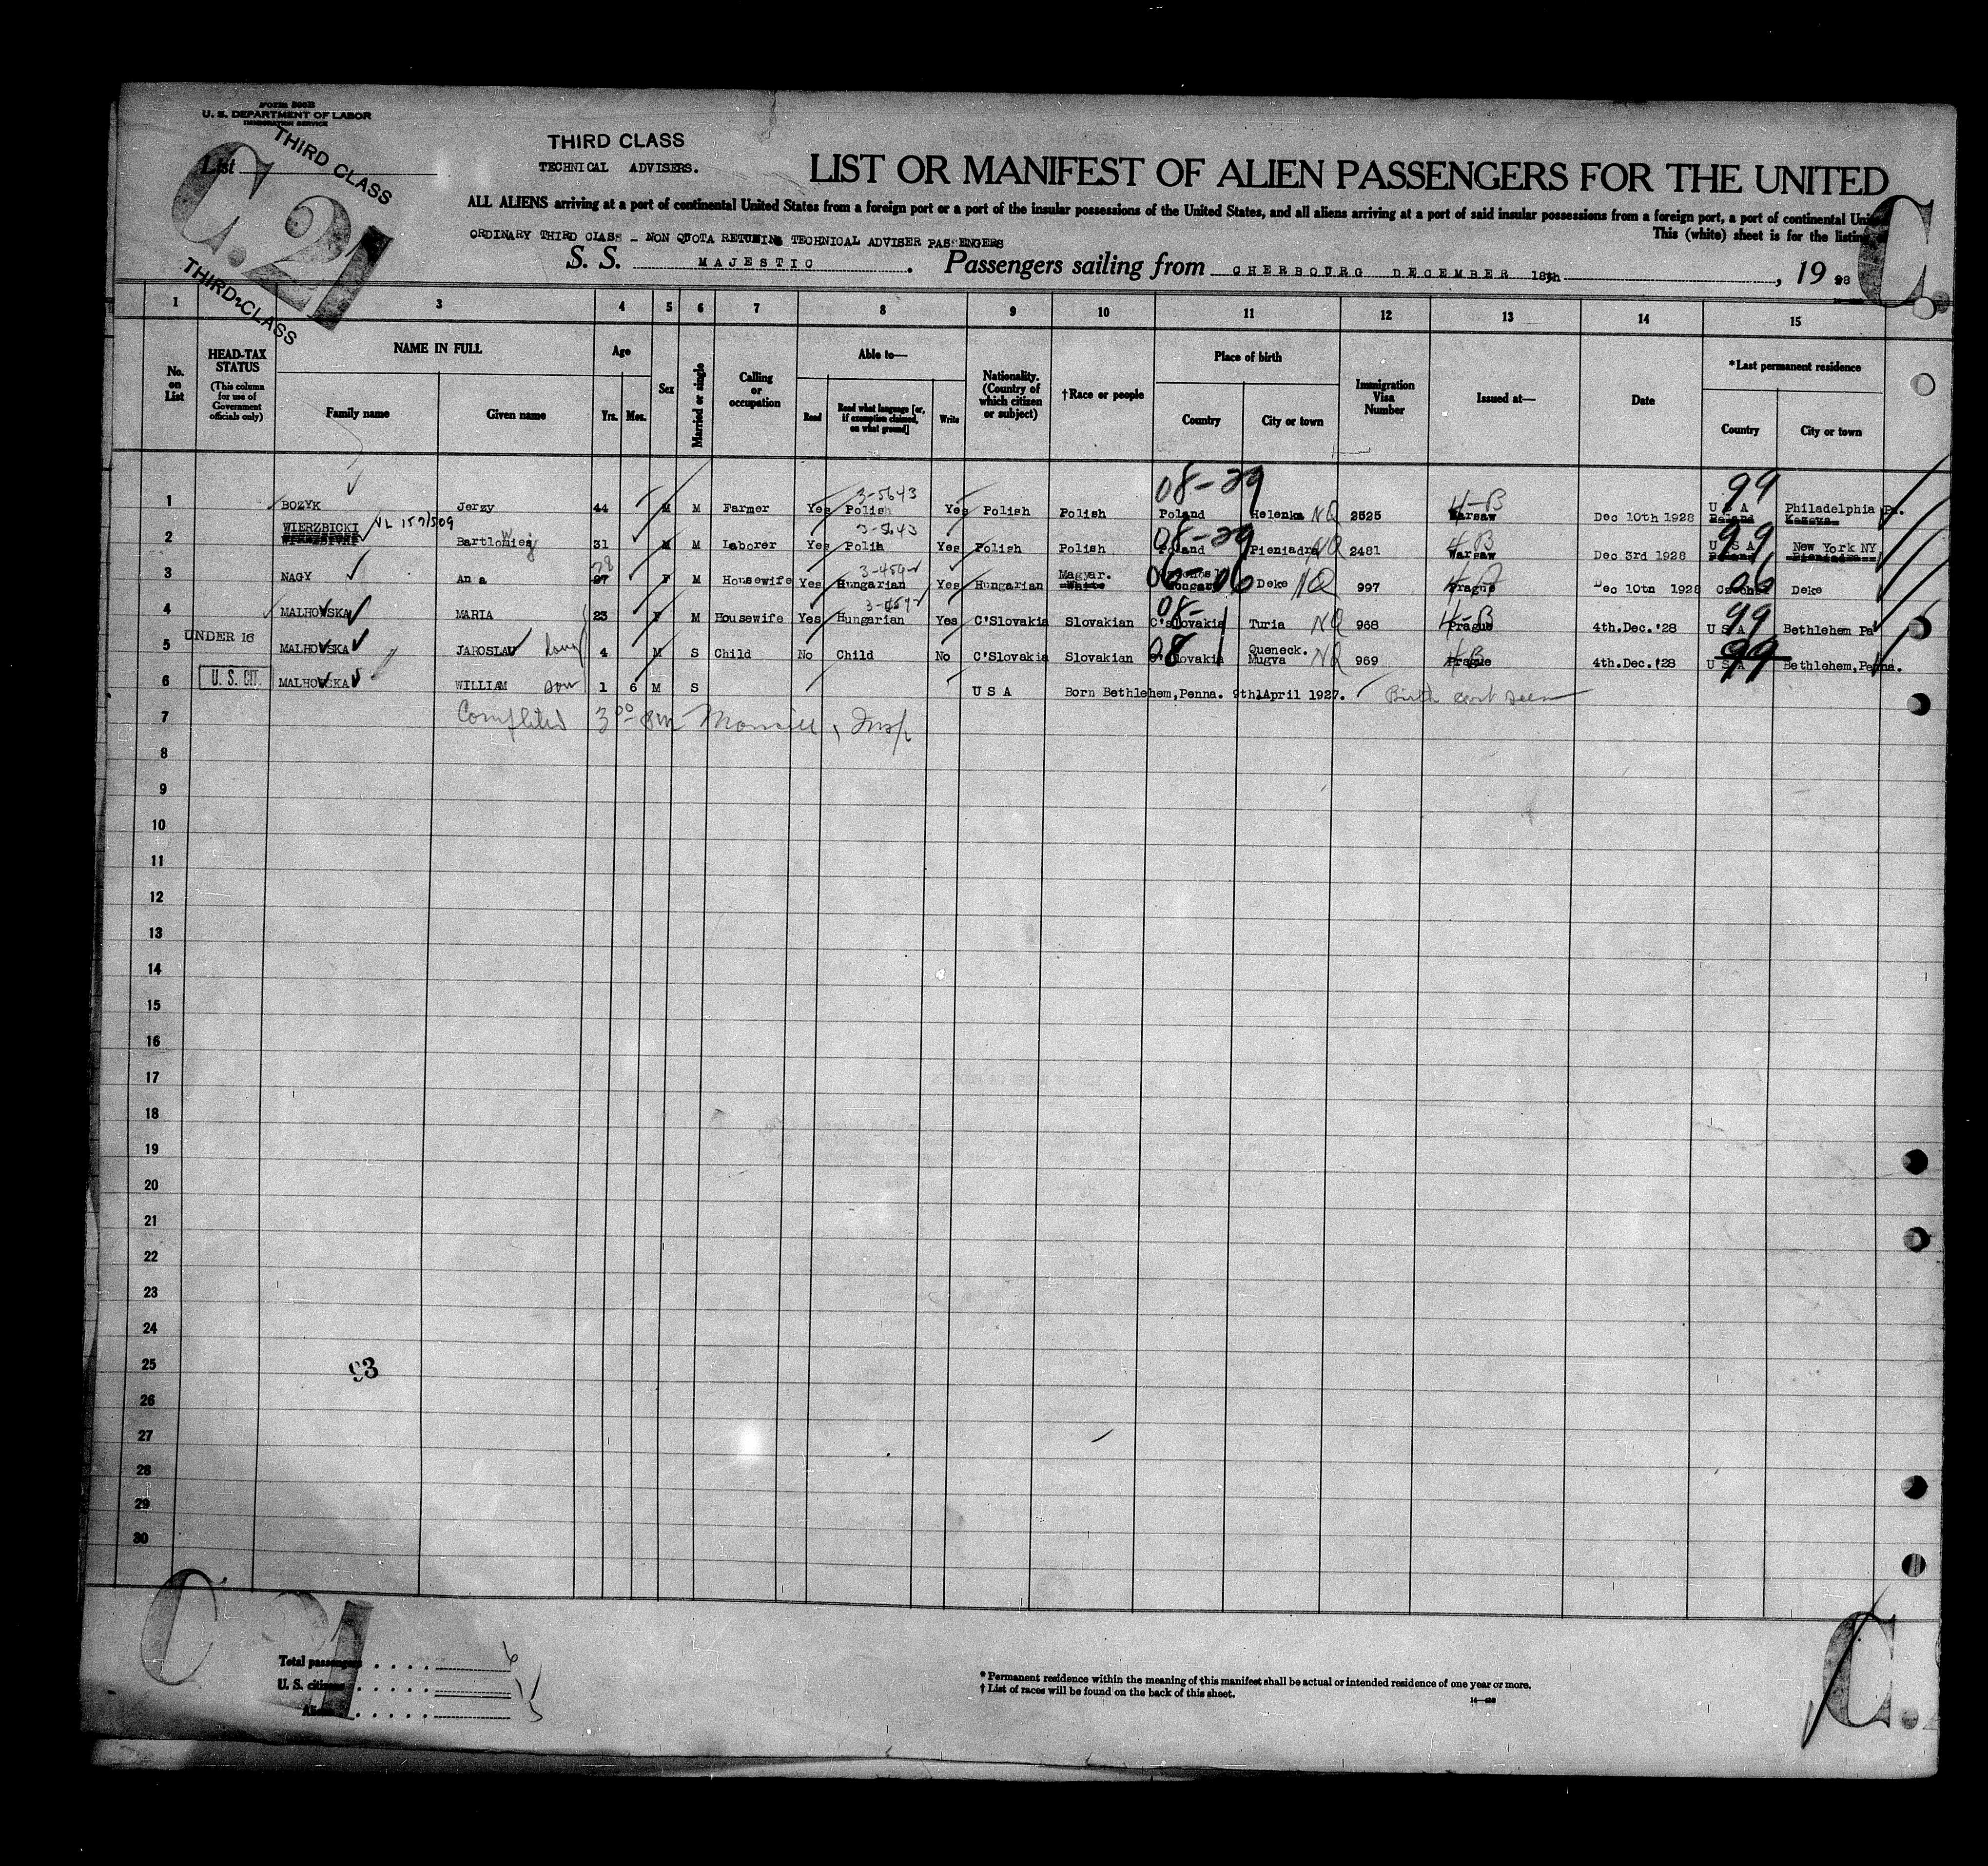 Form 500B
U. S. DEPARTMENT OF LABOR
IMMIGRATION SERVICE
List
THIRD CLASS
C. 21
THIRD CLASS
THIRD CLASS
TECHNICAL ADVISERS.
LIST OR MANIFEST OF ALIEN PASSENGERS FOR THE UNITED
ALL ALIENS arriving at a port of continental United States from a foreign port or a port of the insular possessions of the United States, and all aliens arriving at a port of said insular possessions from a foreign port, a port of continental
This (white) sheet is for the listing
ORDINARY THIRD CLASS - NON QUOTA RETURNING TECHNICAL ADVISER PASSENGERS
S. S. MAJESTIC . Passengers sailing from CHERBOURG DECEMBER 18th , 19 28
C.
1 2 3 4 5 6 7 8 9 10 11 12 13 14 15
No. on List
HEAD-TAX STATUS (This column for use of Government officials only)
NAME IN FULL
Family name Given name
Age
Yrs. Mos.
Sex
Married or single
Calling or occupation
Able to—
Read Read what language [or, if exemption claimed, on what ground] Write
Nationality. (Country of which citizen or subject)
†Race or people
Place of birth
Country City or town
Immigration Visa Number
Issued at—
Date
*Last permanent residence
Country City or town
1 BOZYK Jerzy 44 M M Farmer Yes Polish 3-5643 Yes Polish Polish Poland 08-29 Helenka NQ 2525 Warsaw 4-B Dec 10th 1928 U S A Poland 99 Philadelphia Pa.
2 WIERZBICKI VL 157/509 Bartlomiej 31 M M Laborer Yes Polih 3-5643 Yes Polish Polish Poland 08-29 Pieniadra NQ 2481 Warsaw 4B Dec 3rd 1928 U S A Poland 99 New York NY
3 NAGY Anna 27 28 F M Housewife Yes Hungarian Yes Hungarian Magyar. White 06-06 Deke NQ 997 Prague Dec 10th 1928 06 Deke
4 MALHOVSKA MARIA 23 F M Housewife Yes Hungarian Yes C'Slovakia Slovakian C'slovakia 08- Turia NQ 968 Prague 4-B 4th.Dec.'28 U S A 99 Bethlehem Pa
5 UNDER 16 MALHOVSKA JAROSLAV 4 M S Child No Child No C'Slovakia Slovakian C'slovakia 08 Queneck. Mugva NQ 969 Prague 4B 4th.Dec.'28 U S A 99 Bethlehem,Penna.
6 U. S. CIT. MALHOVSKA WILLIAM son 1 6 M S U S A Born Bethlehem,Penna. 9th April 1927. Birth cert seen
7 Completed 3 00
8
9
10
11
12
13
14
15
16
17
18
19
20
21
22
23
24
25 93
26
27
28
29
30
C 21
Total passengers 6
U. S. citizens 1
Aliens 5
* Permanent residence within the meaning of this manifest shall be actual or intended residence of one year or more.
† List of races will be found on the back of this sheet.
C.